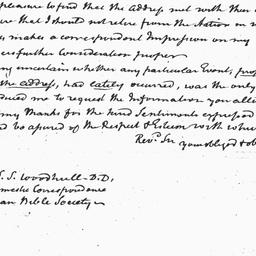 pleasure to find that the Address met with their
that I should not retire from the Station
makes a correspondent Impression on my
further Consideration proper
uncertain whether any particular Event,
the address, had lately occurred, was the only
me to request the Information you
my thanks for the kind Sentiments expressed
be assured of the Respect & Esteem with
Revd. Sir your obliged &
S. Woodhull - D.D.
Domestic Correspondence
Bible Society